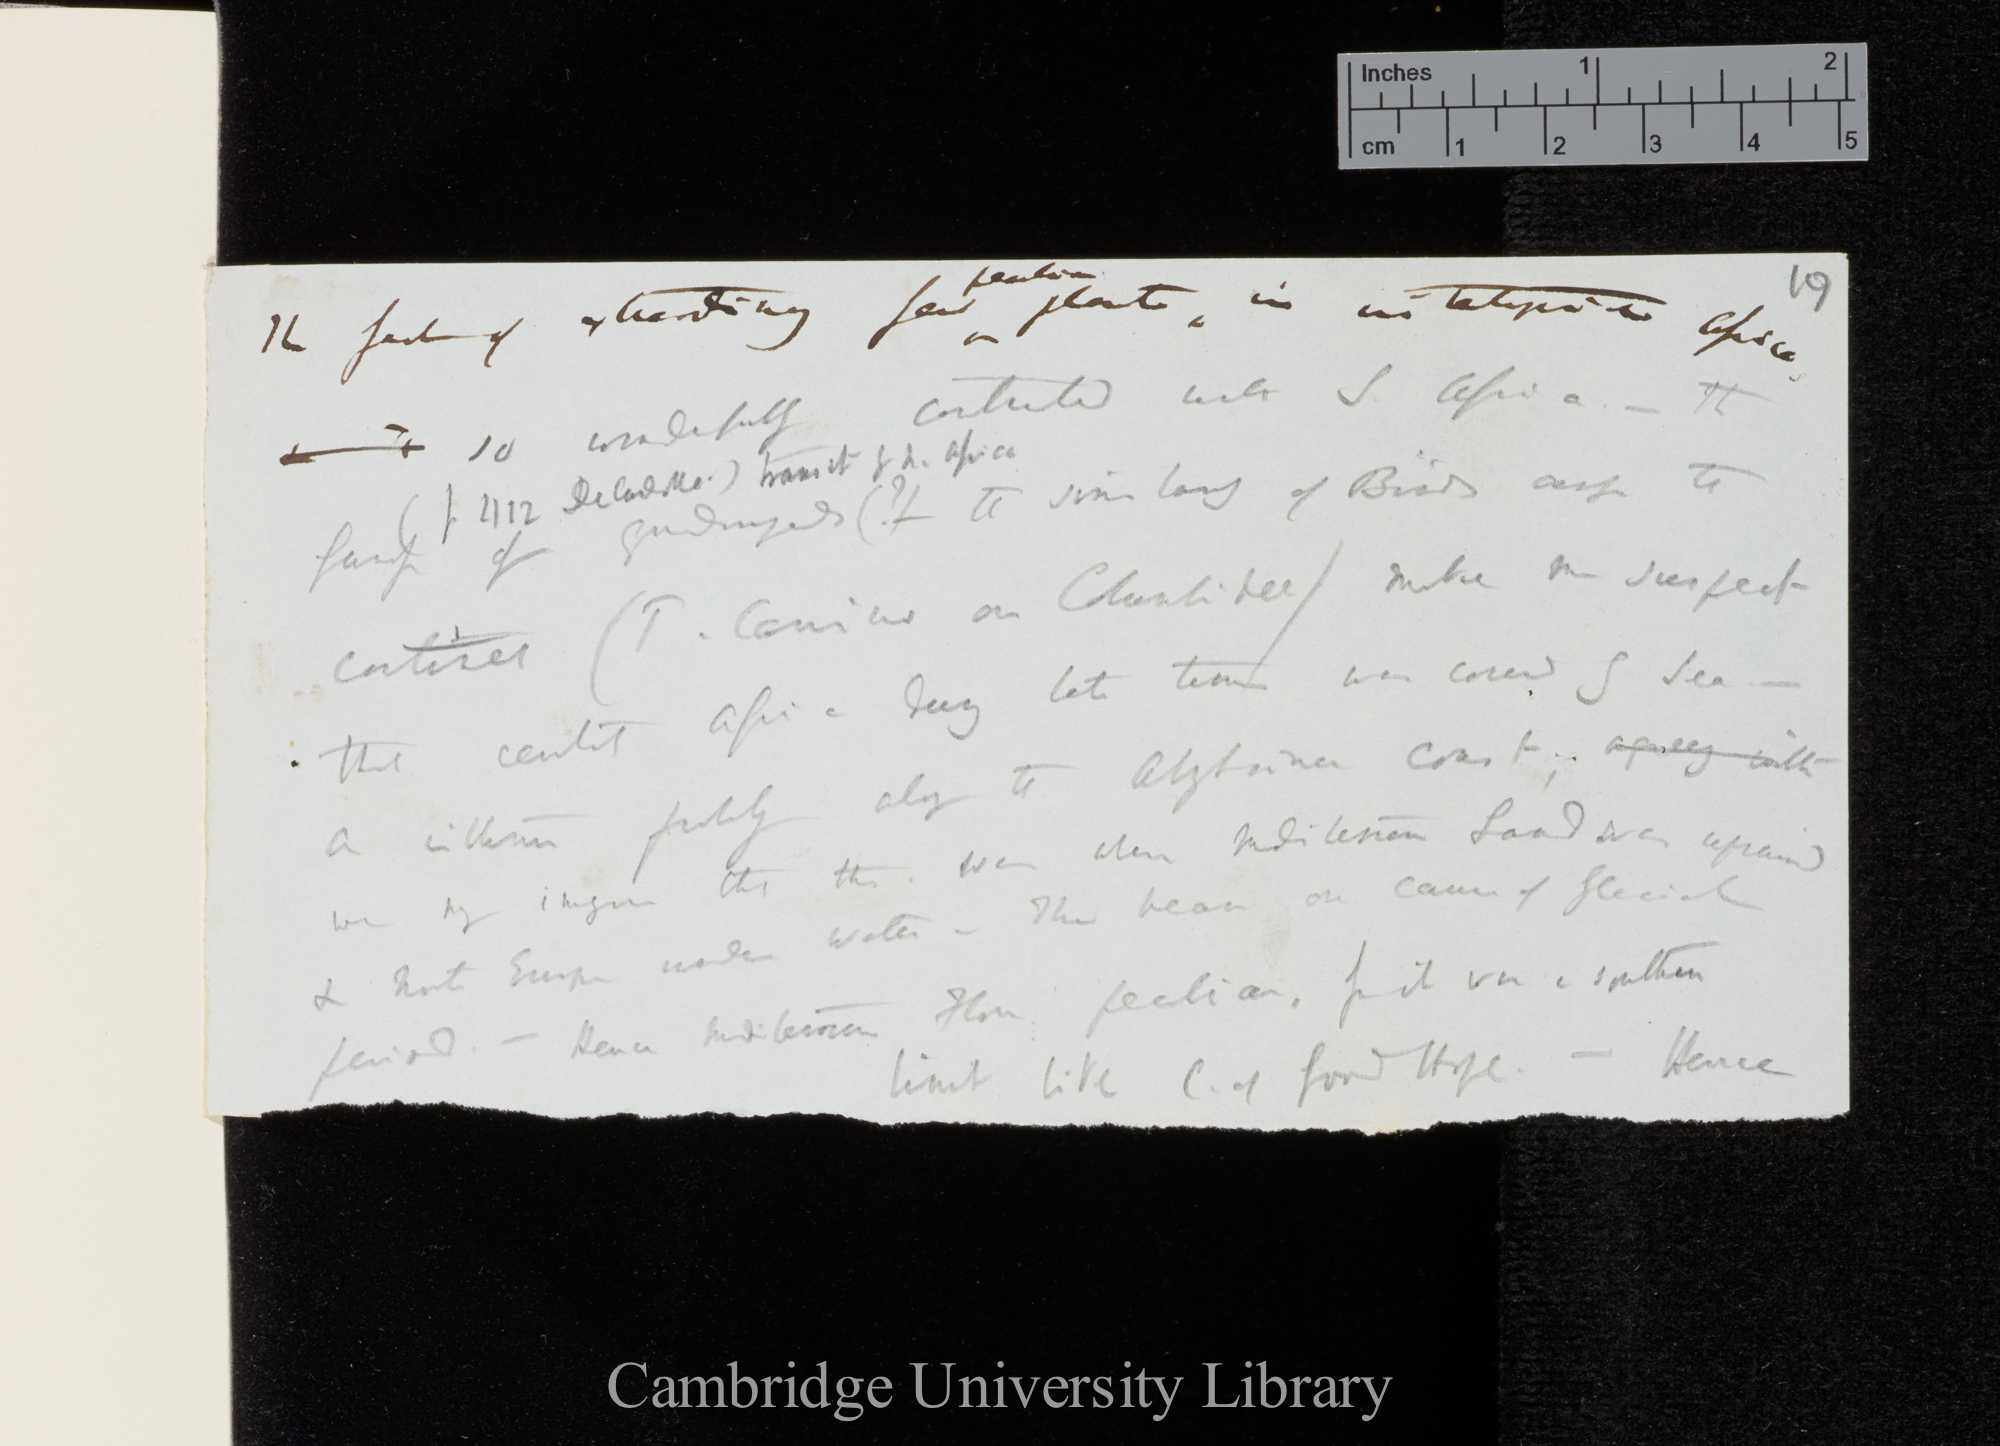 Inches 1 2
cm 1 2 3 4 5
19
peculiar
The fact of extraordinary few plants, in intertropical Africa,
so wonderfully contrasted with S. Africa. — The
(p 1112 DeCandolle.) transit of N. Africa
range of quadrupeds (? & the similarity of Birds across the
continent (T. on Columbidae) make me suspect
that central Africa during late times was covered by Sea —
a probably along the coast; agreeing with
we may imagine that this was when Mediterranean Land was upraised
& North Europe under water — This bears on cause of Glacial
period. — Hence Mediterranean Flora peculiar, for it was a southern
limit like C. of Good Hope. — Hence
Cambridge University Library